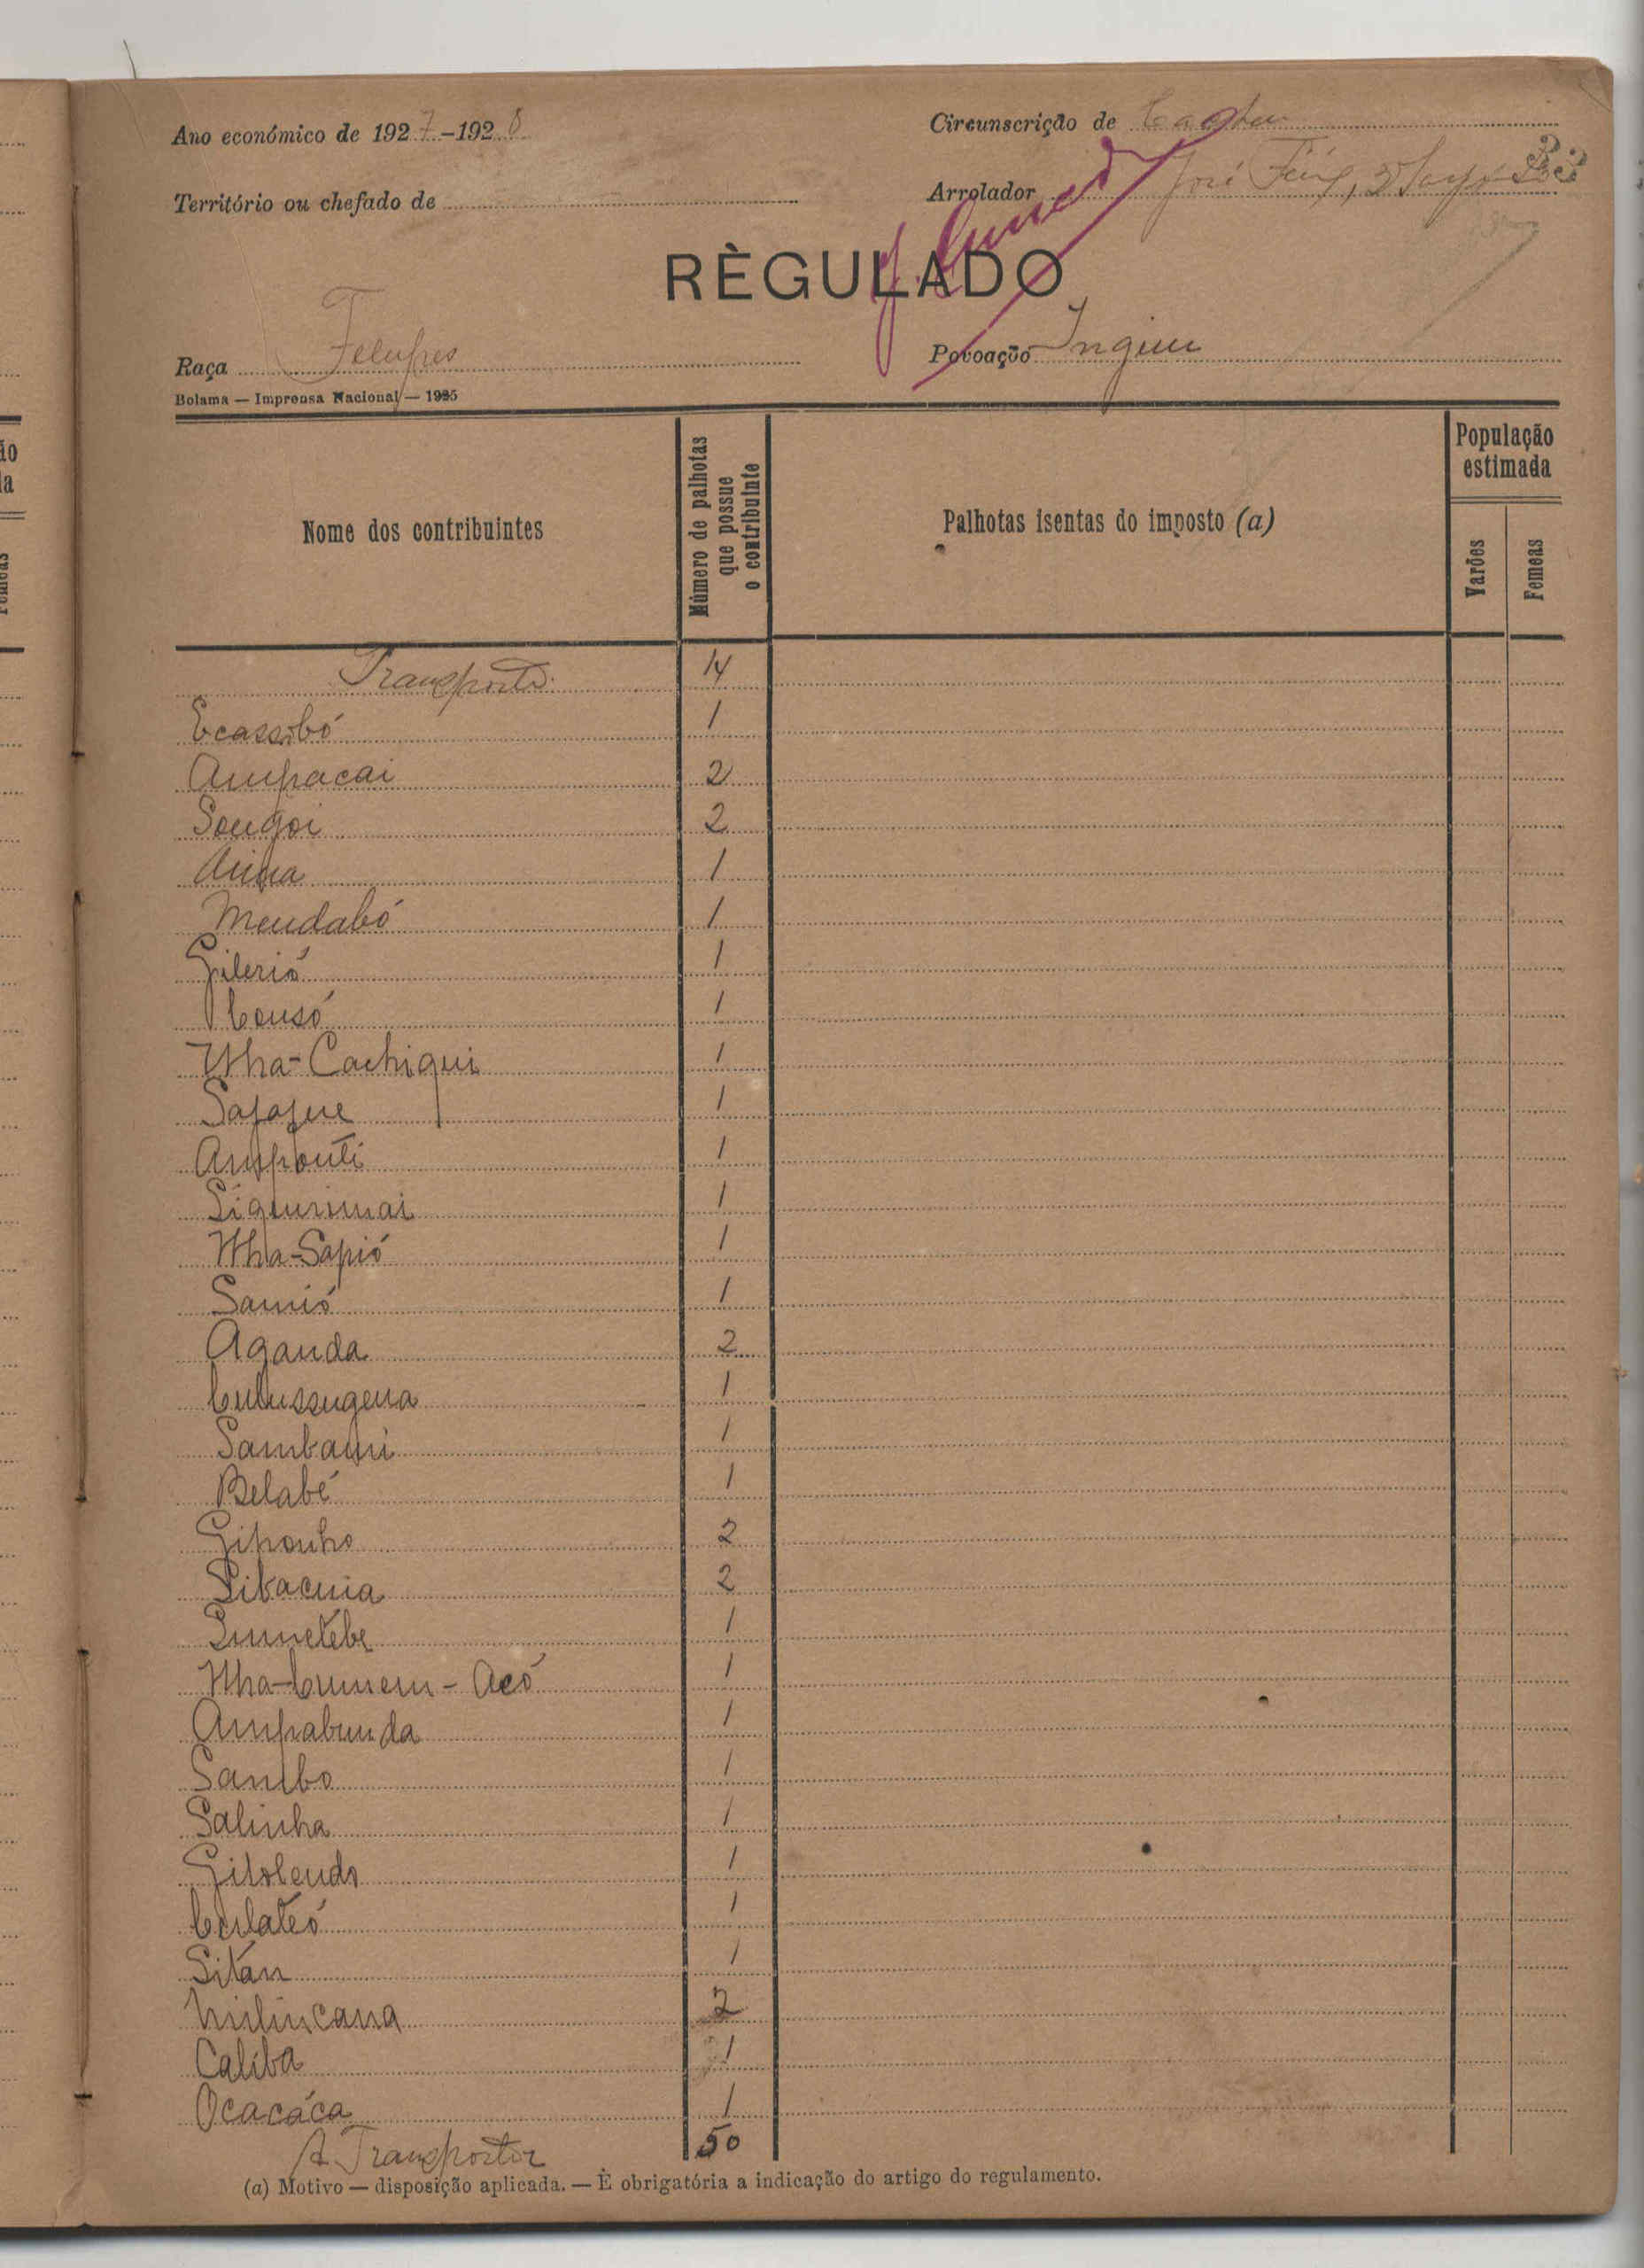 Ano económico de 1927-1928
Circunscrição de Cacheu
Território ou chefado de
Arrolador José
RÈGULADO
Raça Felupes
Povoação
Bolama — Imprensa Nacional — 1925
Nome dos contribuintes
Número de palhotas que possue o contribuinte
Palhotas isentas do imposto (a)
População estimada
Varões
Femeas
Transporte 14
Ecassobó 1
Ampacai 2
Songoi 2
1
Mendabó 1
Gilerió 1
Consó 1
Nha-Cachiqui 1
Safafue 1
Amponti 1
Siqurimai 1
Nha-Sapió 1
Samió 1
Aganda 2
Culussugena 1
Sambami 1
Belabé 1
Giponho 2
Sibacuia 2
1
1
Ampabunda 1
Sambo 1
Salinha 1
Gitolendo 1
Culateó 1
Sitán 1
2
Caliba 1
Ocacáca 1
A Transportar 50
(a) Motivo — disposição aplicada. — È obrigatória a indicação do artigo do regulamento.